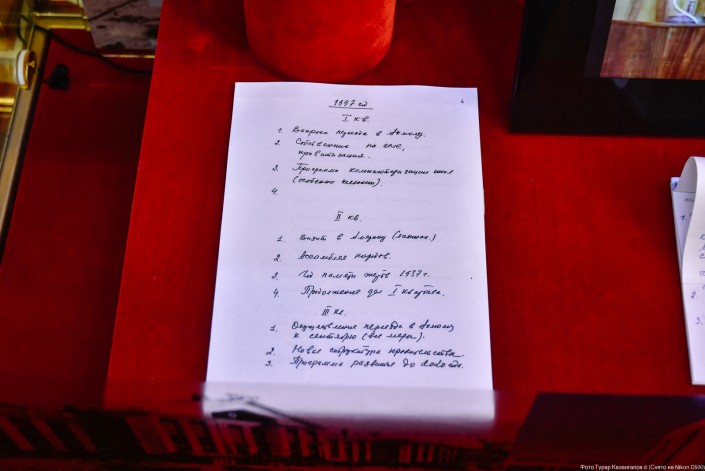 1997 год
I кв.
1. Вопросы переезда в Акмолу.
2. Собственник на селе,
приватизация.
3. Программа компьютеризации школ
(особенно сельских).
4.
II кв.
1. Визит в Акмолу
2. Ассамблея народов.
3. Год памяти жертв 1937 г.
4. Продолжение дел I квартала.
III кв.
1. Осуществление переезда в Акмолу
к сентябрю (все меры).
2. Новая структура правительства.
3. Программа развития до 2020 года.
Фото Турар Казангапов © (Снято на Nikon D500)